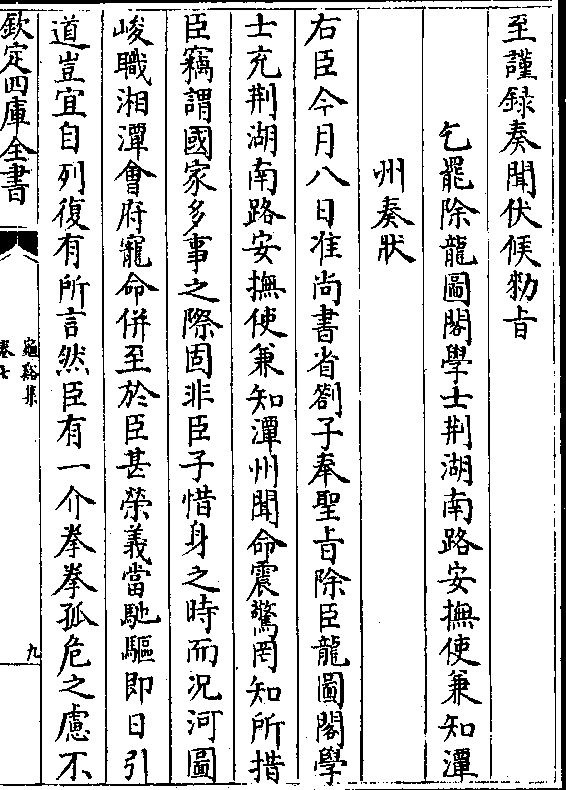 至謹録奏聞伏候勑旨
乞罷除龍圖閣學士荆湖南路安撫使兼知潭
州奏狀
右臣今月八日准尚書省劄子奉聖旨除臣龍圖閣學
士充荆湖南路安撫使兼知潭州聞命震驚罔知所措
臣竊謂國家多事之際固非臣子惜身之時而况河圖
峻職湘潭會府寵命併至於臣甚榮義當馳驅即日引
道豈宜自列復有所言然臣有一介拳拳孤危之慮不
欽定四庫全書
龜谿集
卷七
九